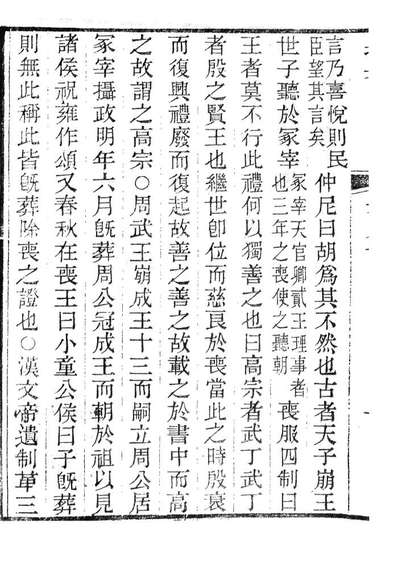 言乃喜悅則民臣望其言矣仲尼曰胡爲其不然也古者天子崩王
世子聽於冢宰冢宰天官卿貳王理事者也三年之喪使之聽朝喪服四制曰
王者莫不行此禮何以獨善之也曰高宗者武丁武丁
者殷之賢王也繼世卽位而慈良於喪當此之時殷衰
而復興禮廢而復起故善之善之故載之於書中而高
之故謂之高宗○周武王崩成王十三而嗣立周公居
冢宰攝政明年六月旣葬周公冠成王而朝於祖以見
諸侯祝雍作頌又春秋在喪王曰小童公侯曰子旣葬
則無此稱此皆旣葬除喪之證也○漢文帝遺制革三